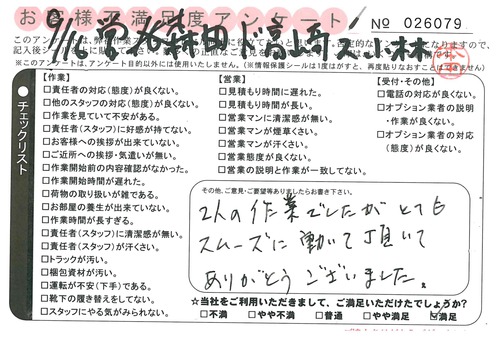 お客様不満足度アンケート
No 026079
9/16 営 松森田 ド高崎 ス小林
※このアンケートは、アンケート目的以外には使用いたしません。(※情報保護シールは1度はがすと、再度貼りなおすことはできません)
チェックリスト
【作業】
□責任者の対応(態度)が良くない。
□他のスタッフの対応(態度)が良くない。
□作業を見ていて不安がある。
□責任者(スタッフ)に好感が持てない。
□お客様への挨拶が出来ていない。
□ご近所への挨拶・気遣いが無い。
□作業開始前の内容確認がなかった。
□作業開始時間が遅れた。
□荷物の取り扱いが雑である。
□お部屋の養生が出来ていない。
□作業時間が長すぎる。
□責任者(スタッフ)に清潔感が無い。
□責任者(スタッフ)が汗くさい。
□トラックが汚い。
□梱包資材が汚い。
□運転が不安(下手)である。
□靴下の履き替えをしてない。
□スタッフにやる気がみられない。
【営業】
□見積もり時間に遅れた。
□見積もり時間が長い。
□営業マンに清潔感が無い。
□営業マンが煙草くさい。
□営業マンが汗くさい。
□営業態度が良くない。
□営業の説明と作業が一致してない。
【受付・その他】
□電話の対応が良くない。
□オプション業者の説明
・作業が良くない。
□オプション業者の対応
(態度)が良くない。
その他、ご意見・ご要望等ありましたらお書き下さい。
2人の作業でしたがとても
スムーズに働いて頂いて
ありがとうございました。
☆当社をご利用いただきまして、ご満足いただけたでしょうか?
□不満 □やや不満 □普通 □やや満足 ☑満足